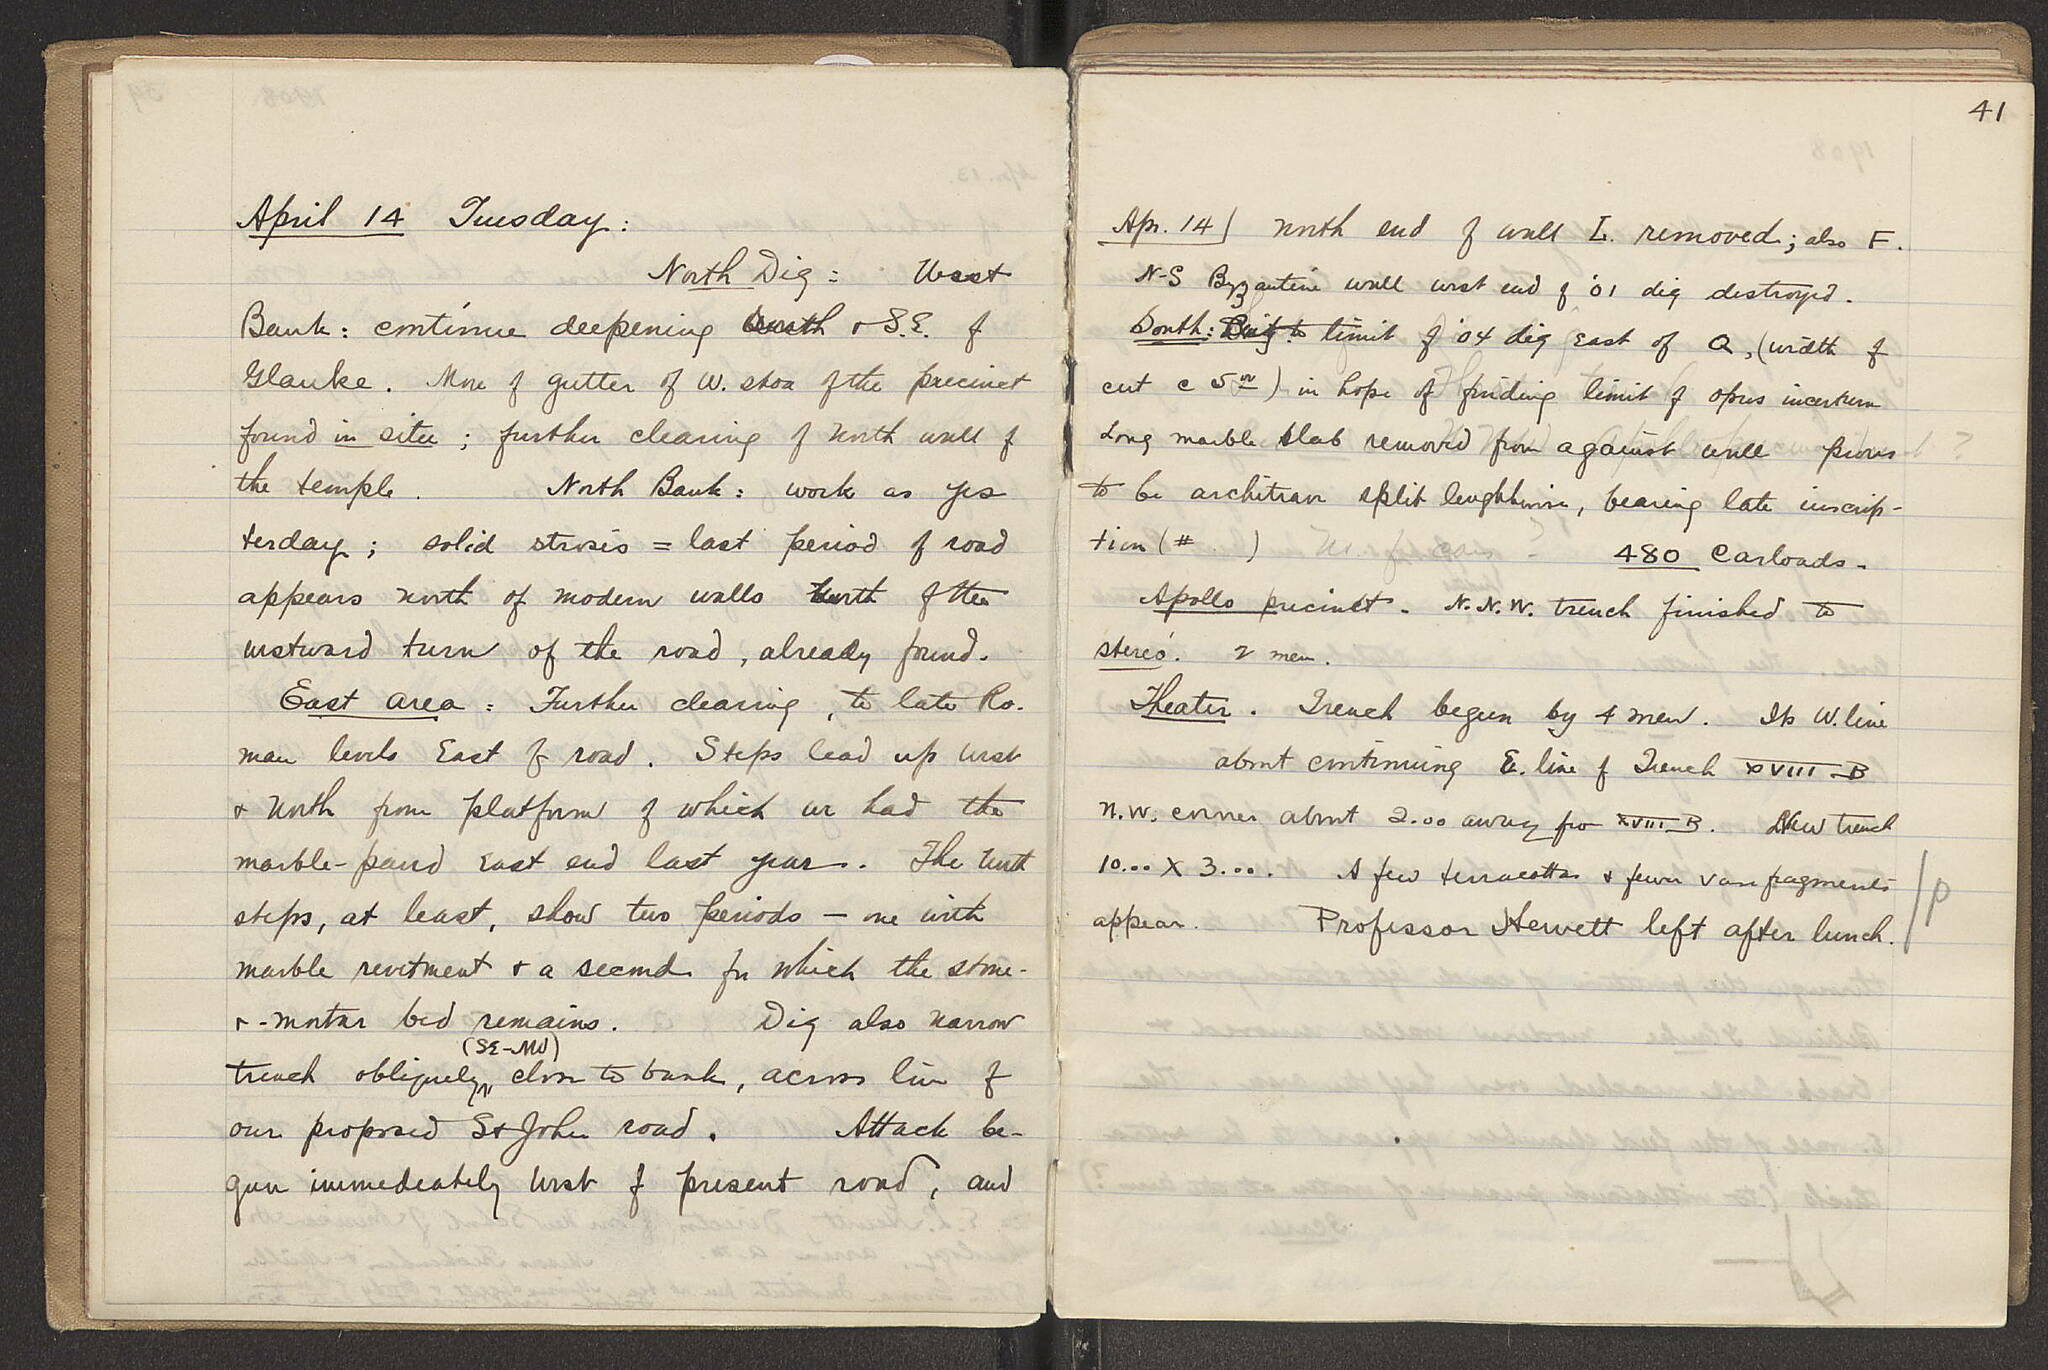 April 14 Tuesday:
North Dig: West
Bank: continue deepening South & S.E. of
Glauke. More of gutter of W. stoa of the precinct
found in situ; further clearing of North wall of
the temple. North Bank: work as yes
terday; solid strosis = last period of road
appears north of modern walls North of the
westward turn of the road, already found.
East area: Further clearing, to late Ro-
man levels East of road. Steps lead up West
& North from platform of which we had the
marble-paved East end last year. The North
steps, at least, show two periods — one with
marble revetment & a second for which the stone-
& -mortar bed remains. Dig also narrow
(SE-NW)
trench obliquely, close to bank, across line of
our proposed St John road. Attack be-
gun immediately West of present road, and
41
Apr. 14) North end of wall L. removed; also F.
N-S Byzantine wall west end of '01 dig destroyed.
South: limit of '04 dig East of Q, (width of
cut c 5m) in hope of finding limit of opus incertum
Long marble slab removed from against wall proves
to be architrave split lengthwise, bearing late inscrip-
tion (# ) 480 Carloads.
Apollo precinct. N.N.W. trench finished to
stereó. 2 men.
Theater. Trench begun by 4 men. Its W. line
about continuing E. line of Trench XVIII-B
N.W. corner about 2.00 away fro XVIII-B. New trench
10.00 X 3.00. A few terracottas & fewer vase fragments
appear. Professor Hewett left after lunch.